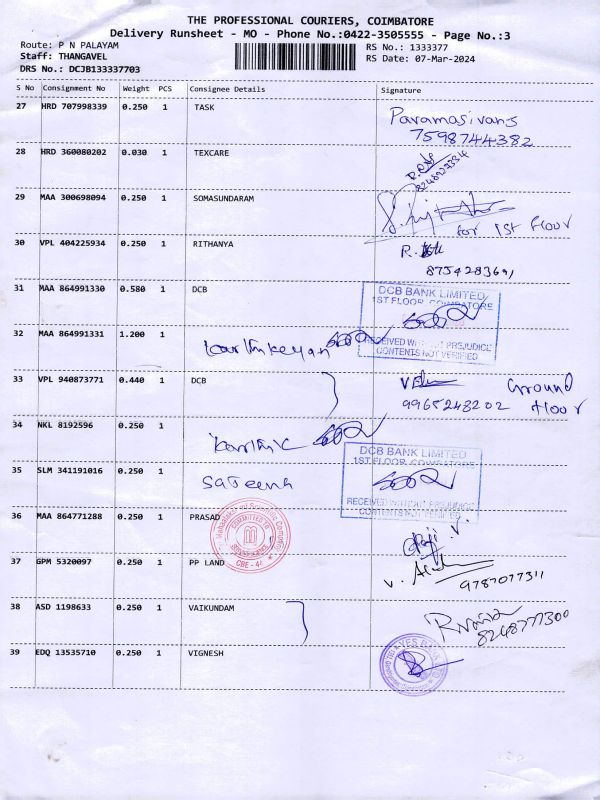 THE PROFESSIONAL COURIERS, COIMBATORE
Delivery Runsheet - MO - Phone No.:0422-3505555 - Page No.:3
Route: P N PALAYAM
RS No.: 1333377
Staff: THANGAVEL
RS Date: 07-Mar-2024
DRS No.: DCJB133337703
S No Consignment No Weight PCS Consignee Details Signature
27 HRD 707998339 0.250 1 TASK
Paramasivans
7598744382
28 HRD 360080202 0.030 1 TEXCARE
29 MAA 300698094 0.250 1 SOMASUNDARAM
for 1st floor
30 VPL 404225934 0.250 1 RITHANYA
R.
8754283691
31 MAA 864991330 0.580 1 DCB
DCB BANK LIMITED
1ST FLOOR, COIMBATORE
RECEIVED WITHOUT PREJUDICE
CONTENTS NOT VERIFIED
32 MAA 864991331 1.200 1
Karthikeyan
33 VPL 940873771 0.440 1 DCB
Ground
9965248202 floor
34 NKL 8192596 0.250 1
Karthik
DCB BANK LIMITED
1ST FLOOR, COIMBATORE
35 SLM 341191016 0.250 1
Sateena
RECEIVED WITHOUT PREJUDICE
CONTENTS NOT VERIFIED
36 MAA 864771288 0.250 1 PRASAD
COMMITTED TO
CBE - 44
37 GPM 5320097 0.250 1 PP LAND
9787077311
38 ASD 1198633 0.250 1 VAIKUNDAM
8248777300
39 EDQ 13535710 0.250 1 VIGNESH
YES BANK